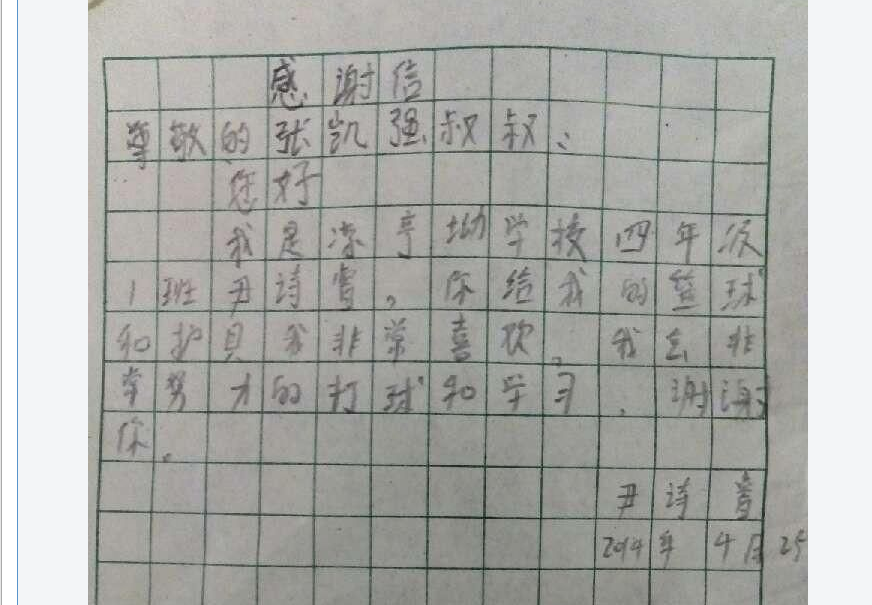 感谢信
尊敬的张凯强叔叔:
您好
我是凉亭坳学校四年级
1班尹诗雪。你给我的篮球
和护具我非常喜欢。我会非
常努力的打球和学习。谢谢
你。
尹诗雪
2014年4月25